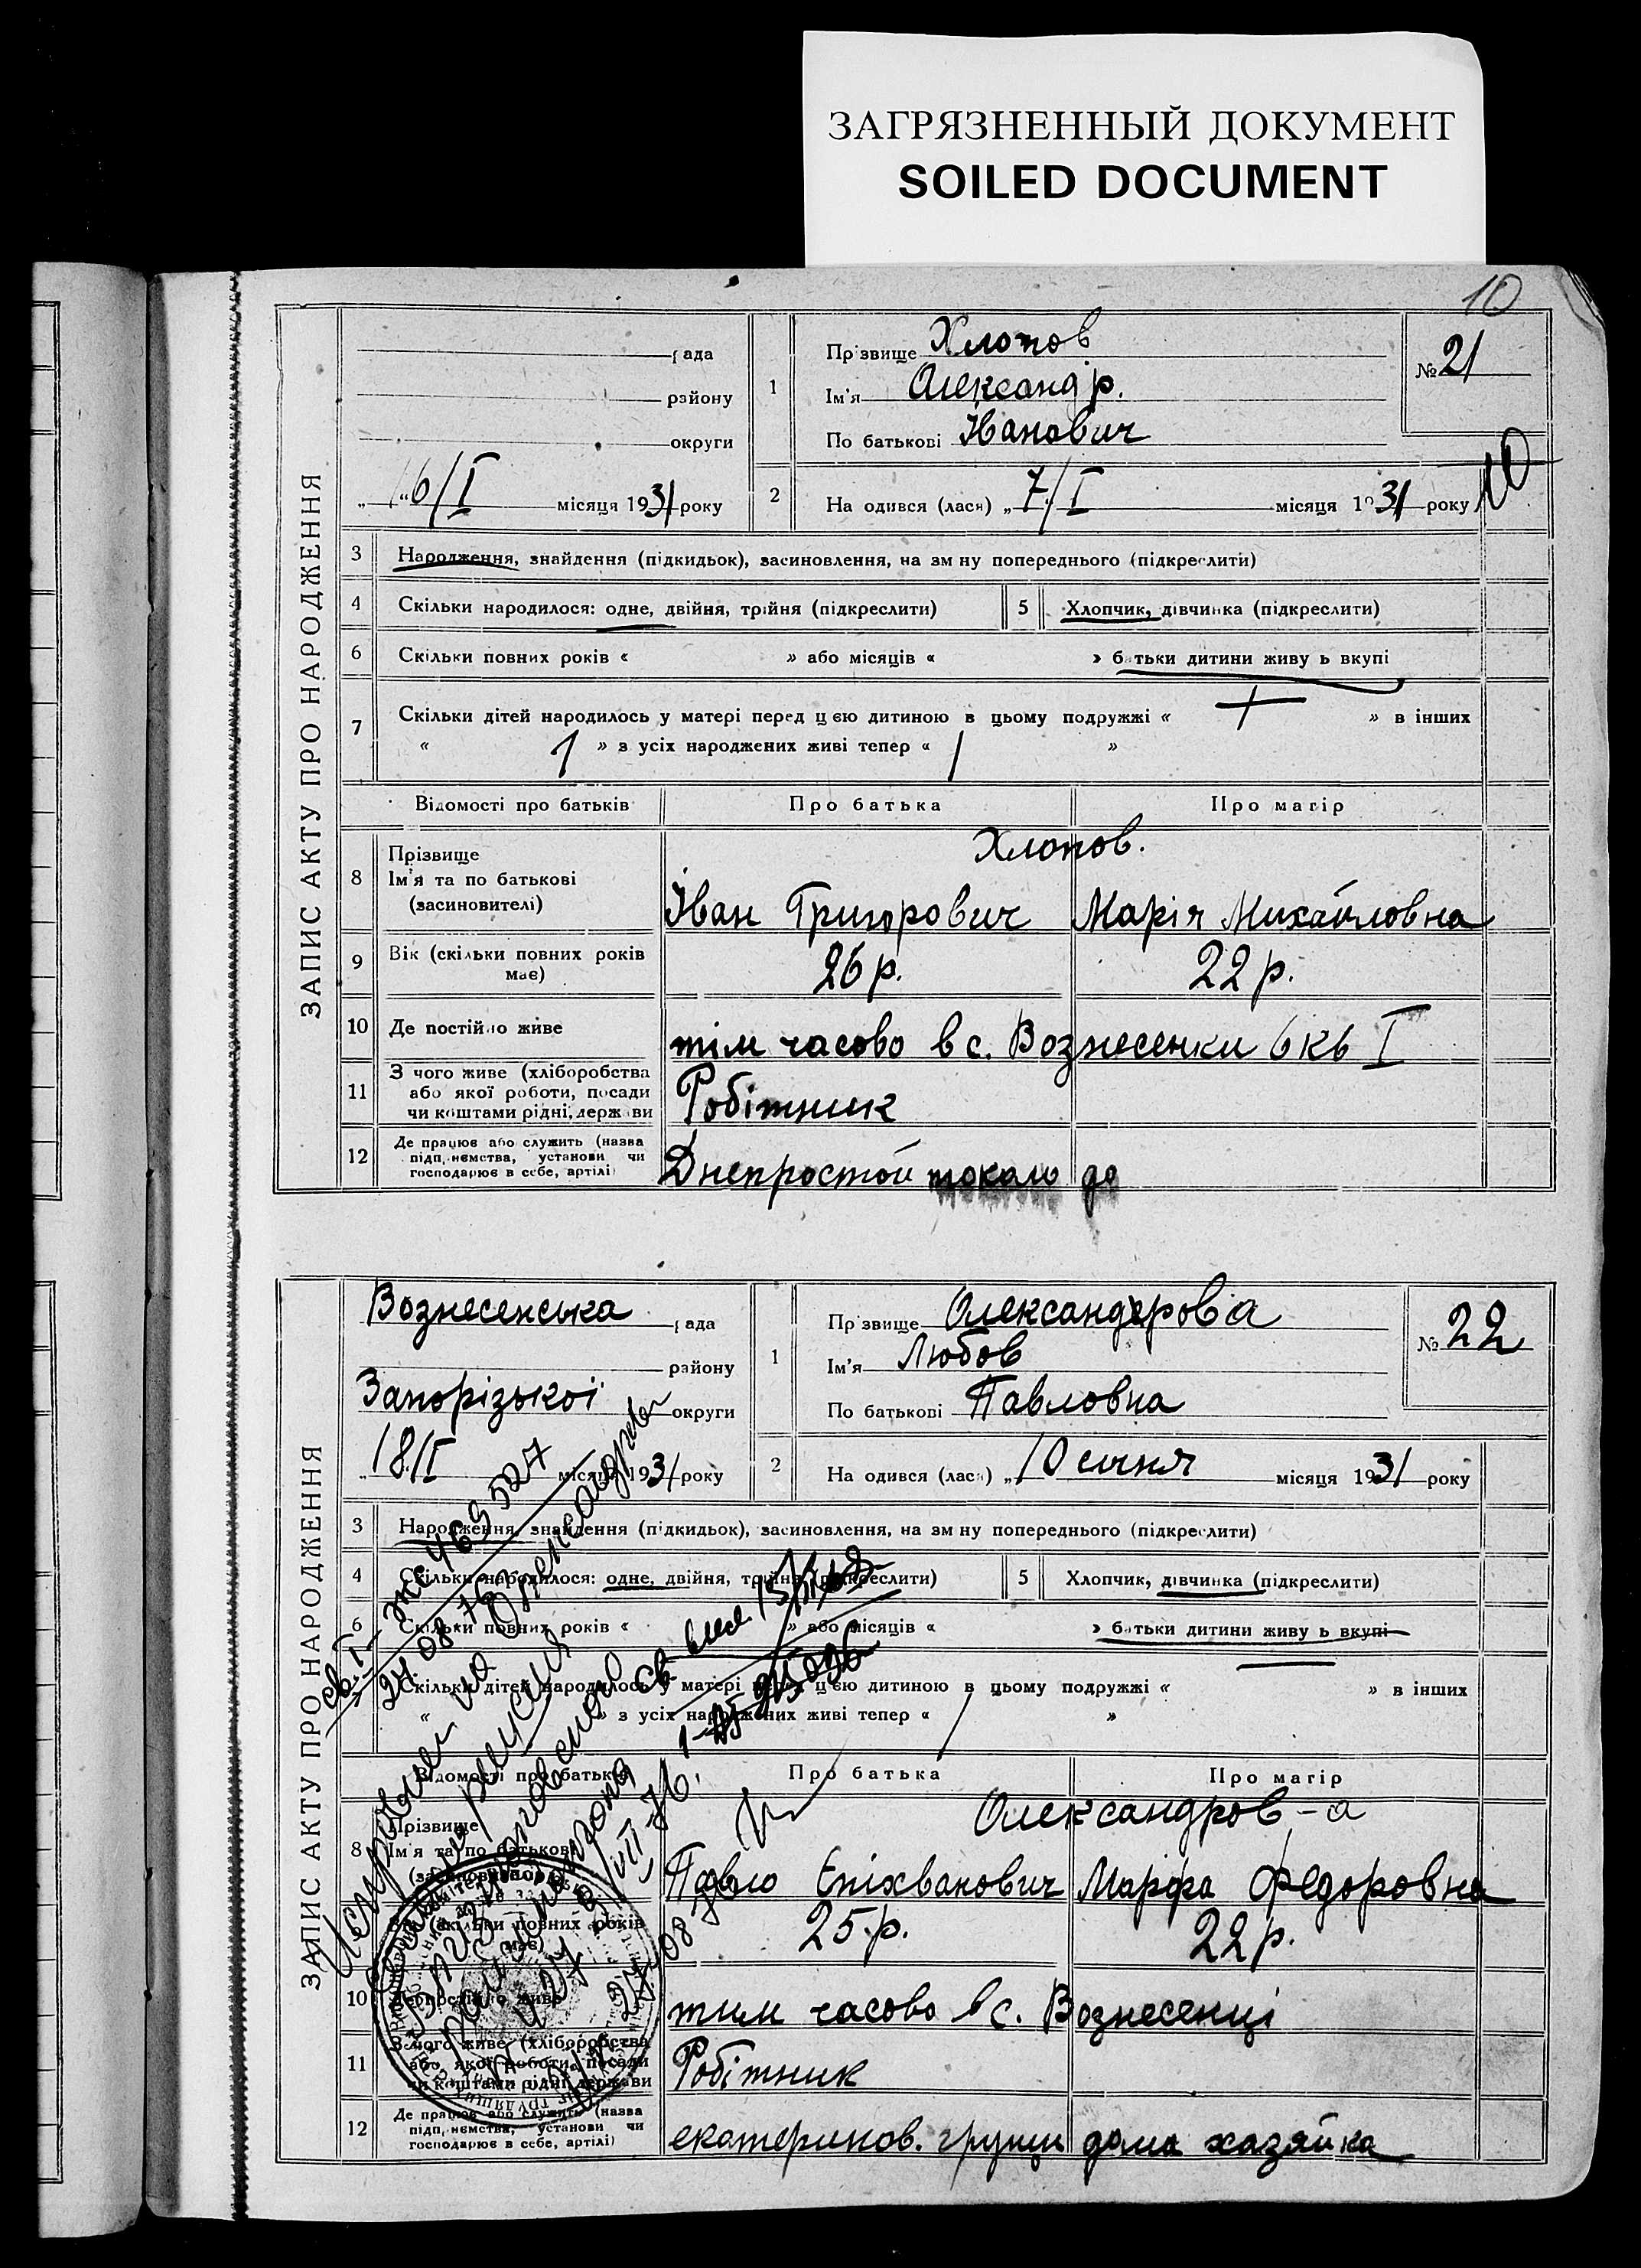 ЗАГРЯЗНЕННЫЙ ДОКУМЕНТ
SOILED DOCUMENT
10
ЗАПИС АКТУ ПРО НАРОДЖЕННЯ
рада
району
округи
„ 16/I місяця 1931 року
1
Прізвище Хлопов
Ім'я Олександр.
По батькові Іванович
№ 21
2 На одився (лася) „ 7/I місяця 1931 року
10
3 Народження, знайдення (підкидьок), засиновлення, на зм ну попереднього (підкреслити)
4 Скільки народилося: одне, двійня, трійня (підкреслити) 5 Хлопчик, дівчинка (підкреслити)
6 Скільки повних років « » або місяців « » батьки дитини живу ь вкупі
7 Скільки дітей народилось у матері перед цією дитиною в цьому подружжі « » в інших
« 1 » з усіх народжених живі тепер « 1 »
Відомості про батьків Про батька Про матір
8 Прізвище
Ім'я та по батькові
(засиновителі)
Хлопов.
Іван Григорович Марія Михайловна
9 Вік (скільки повних років має) 26 р. 22 р.
10 Де постійно живе тім часово в с. Вознесенки 6 кв I
11 З чого живе (хліборобства
або якої роботи, посади
чи коштами рідні, держави
Робітник
12 Де працює або служить (назва
підприємства, установи чи
господарює в себе, артілі)
Днепростой
ЗАПИС АКТУ ПРО НАРОДЖЕННЯ
Вознесенська рада
району
Запорізької округи
„ 18/I місяця 1931 року
1
Прізвище Олександрова
Ім'я Любов
По батькові Павловна
№ 22
2 На одився (лася) „ 10 січня місяця 1931 року
3 Народження, знайдення (підкидьок), засиновлення, на зм ну попереднього (підкреслити)
4 Скільки народилося: одне, двійня, трійня (підкреслити) 5 Хлопчик, дівчинка (підкреслити)
6 Скільки повних років « » або місяців « » батьки дитини живу ь вкупі
7 Скільки дітей народилось у матері перед цією дитиною в цьому подружжі « — » в інших
« » з усіх народжених живі тепер « »
Відомості про батьків Про батька Про матір
8 Прізвище
Ім'я та по батькові
Олександров-а
Павло Єпіхванович Марфа Федоровна
25 р. 22 р.
10 тим часово в с. Вознесенці
11 З чого живе (хліборобства
або якої роботи, посади
чи коштами рідні, держави
Робітник
12 Де працює або служить (назва
підприємства, установи чи
господарює в себе, артілі)
екатеринов. групи дома хазяйка